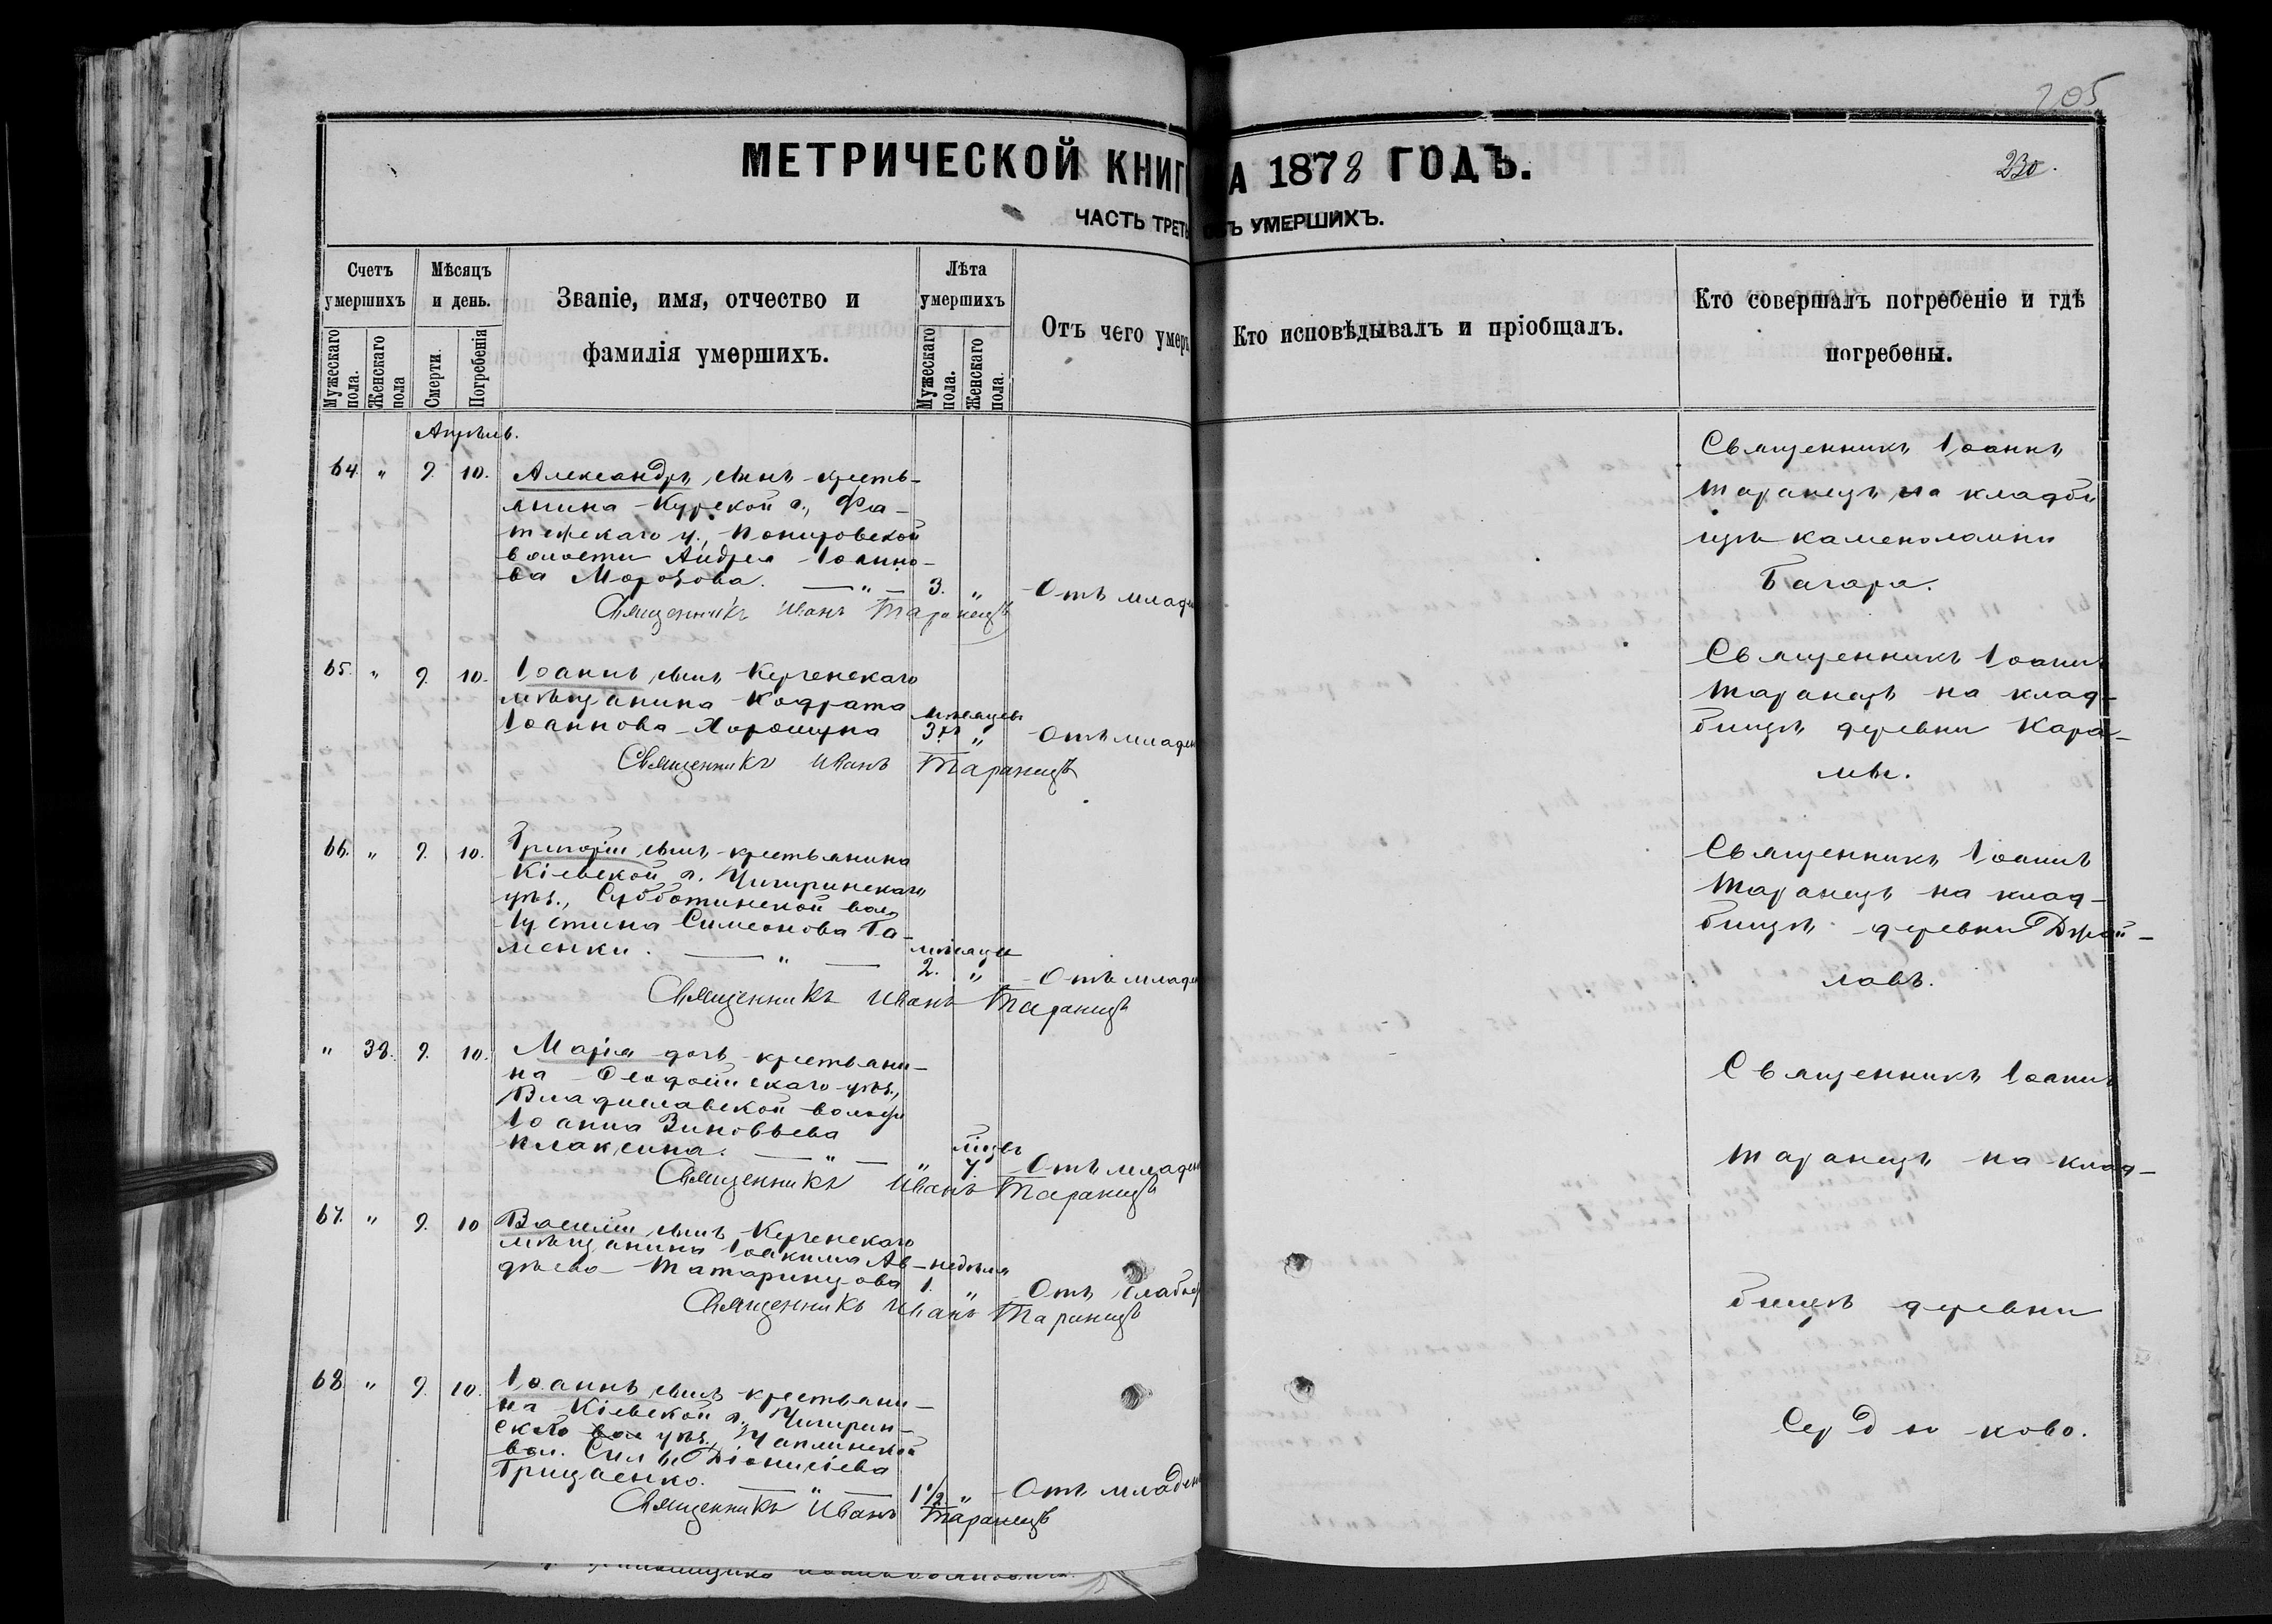 205
МЕТРИЧЕСКОЙ КНИГ А 1878 ГОДЪ.
230.
ЧАСТЬ ТРЕТЬ ОБЪ УМЕРШИХЪ.
Счетъ умершихъ
Мужескаго пола.
Женскаго пола
Мѣсяцъ и день.
Смерти.
Погребенія
Званіе, имя, отчество и
фамилія умершихъ.
Лѣта умершихъ
Мужескаго пола.
Женскаго пола.
Отъ чего умер
Кто исповѣдывалъ и пріобщалъ.
Кто совершалъ погребеніе и гдѣ
погребены.
Апрѣль.
64. " 9. 10. Александръ, сынъ крестья-
нина Курской г., Фа-
тежскаго у., Поныровской
волости Андрея Іоанно-
ва Морозова. — " — 3. " Отъ младе
Священникъ Иванъ Таранецъ
Священникъ Іоаннъ
Таранецъ на кладби
щѣ каменоломни
Багара.
65. " 9. 10. Іоаннъ, сынъ Керченскаго
мѣщанина Кодрата мѣсяцевъ
Іоаннова Хорошуна 3хъ " Отъ младен
Священникъ Иванъ Таранецъ
Священникъ Іоаннъ
Таранецъ на клад-
бищѣ деревни Кара-
лы.
66. " 9. 10. Григорій, сынъ крестьянина
Кіевской г. Чигиринскаго
уѣз., Субботинской вол.
Іустина Симеонова Га-
менки. — " — мѣсяца
2. " Отъ младен
Священникъ Иванъ Таранецъ
Священникъ Іоаннъ
Таранецъ на клад-
бищѣ деревни Джай-
лавъ.
" 38. 9. 10. Марія дочь крестьяни-
на Ѳеодосійскаго уѣз.,
Владиславской волости
Іоанна Зиновьева
Плаксина. — " — " 7 Отъ младен
Священникъ Иванъ Таранецъ
Священникъ Іоаннъ
Таранецъ на клад-
67. " 9. 10 Василій, сынъ Керченскаго
мѣщанина Іоакима Ав- недѣля
дѣева Татаринцова 1. " Отъ слабос
Священникъ Иванъ Таранецъ
бищѣ деревни
68. " 9. 10. Іоаннъ, сынъ крестьяни-
на Кіевской г., Чигирин-
скаго вол уѣз., Чаплинской
вол. Силы Діонисіева
Грицаенко. — " — 1 1/2. " Отъ младен
Священникъ Иванъ Таранецъ
Сердюково.